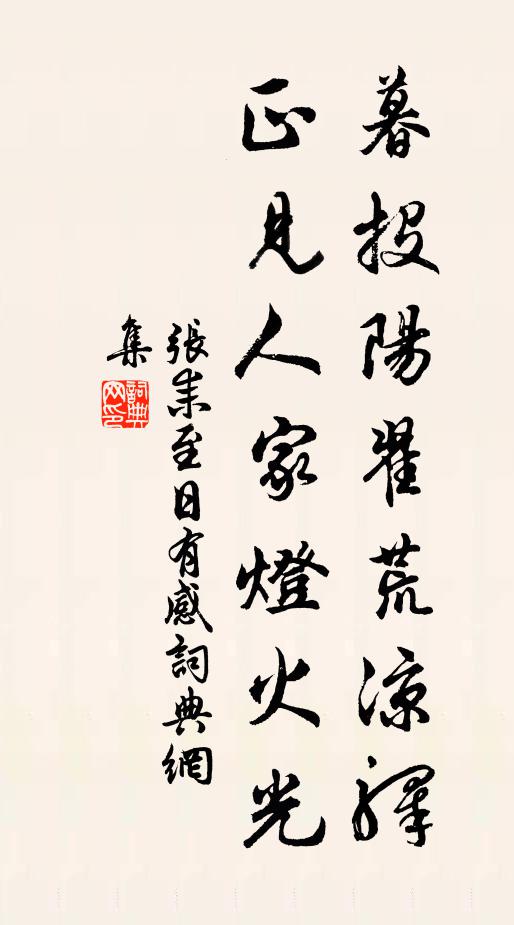 暮投陽翟荒涼驛
正見人家燈火光
張耒至日有感詞典網
集
詞典
网印